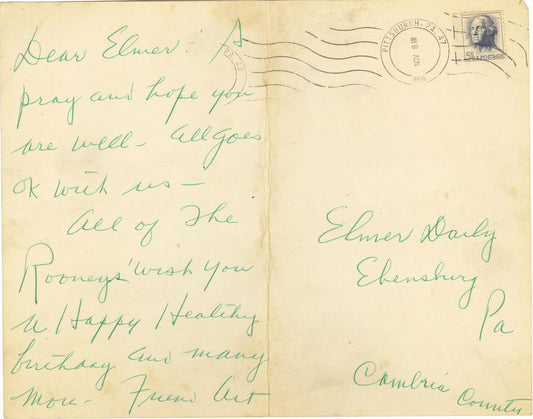 Dear Elmer. I
pray and hope you
are well - All Goes
ok with us -
All of The
Rooneys' wish you
a Happy Healthy
birthday and many
more - Friend Art
PA. 47
PITTSBURGH, PA. 47
NOV 8
5¢ U.S. POSTAGE
Elmer Daily
Ebensburg
Pa
Cambria County